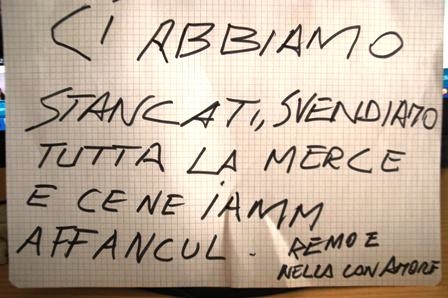 CI ABBIAMO
STANCATI, SVENDIAMO
TUTTA LA MERCE
E CE NE IAMM
AFFANCUL. REMO E
NELLA CON AMORE